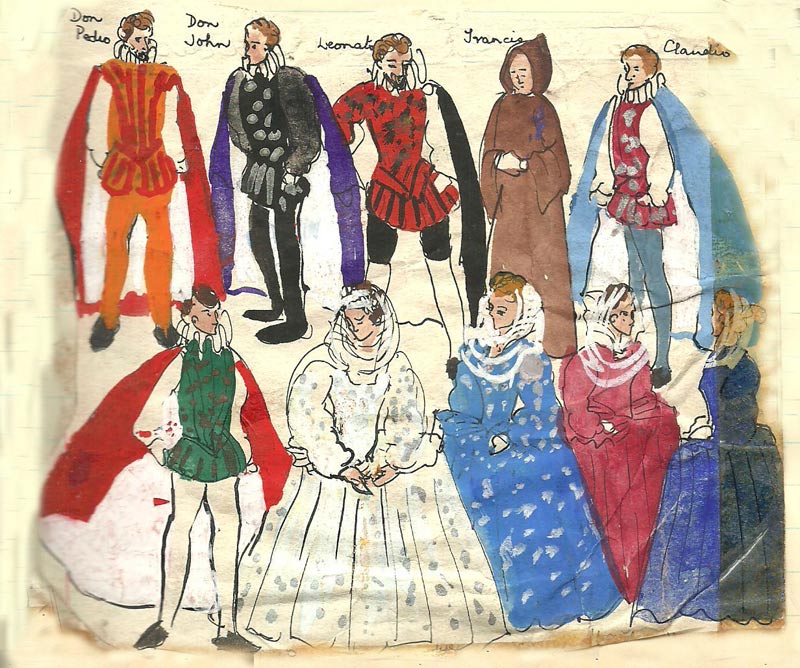 Don
Pedro
Don
John
Leonato
Francis
Claudio